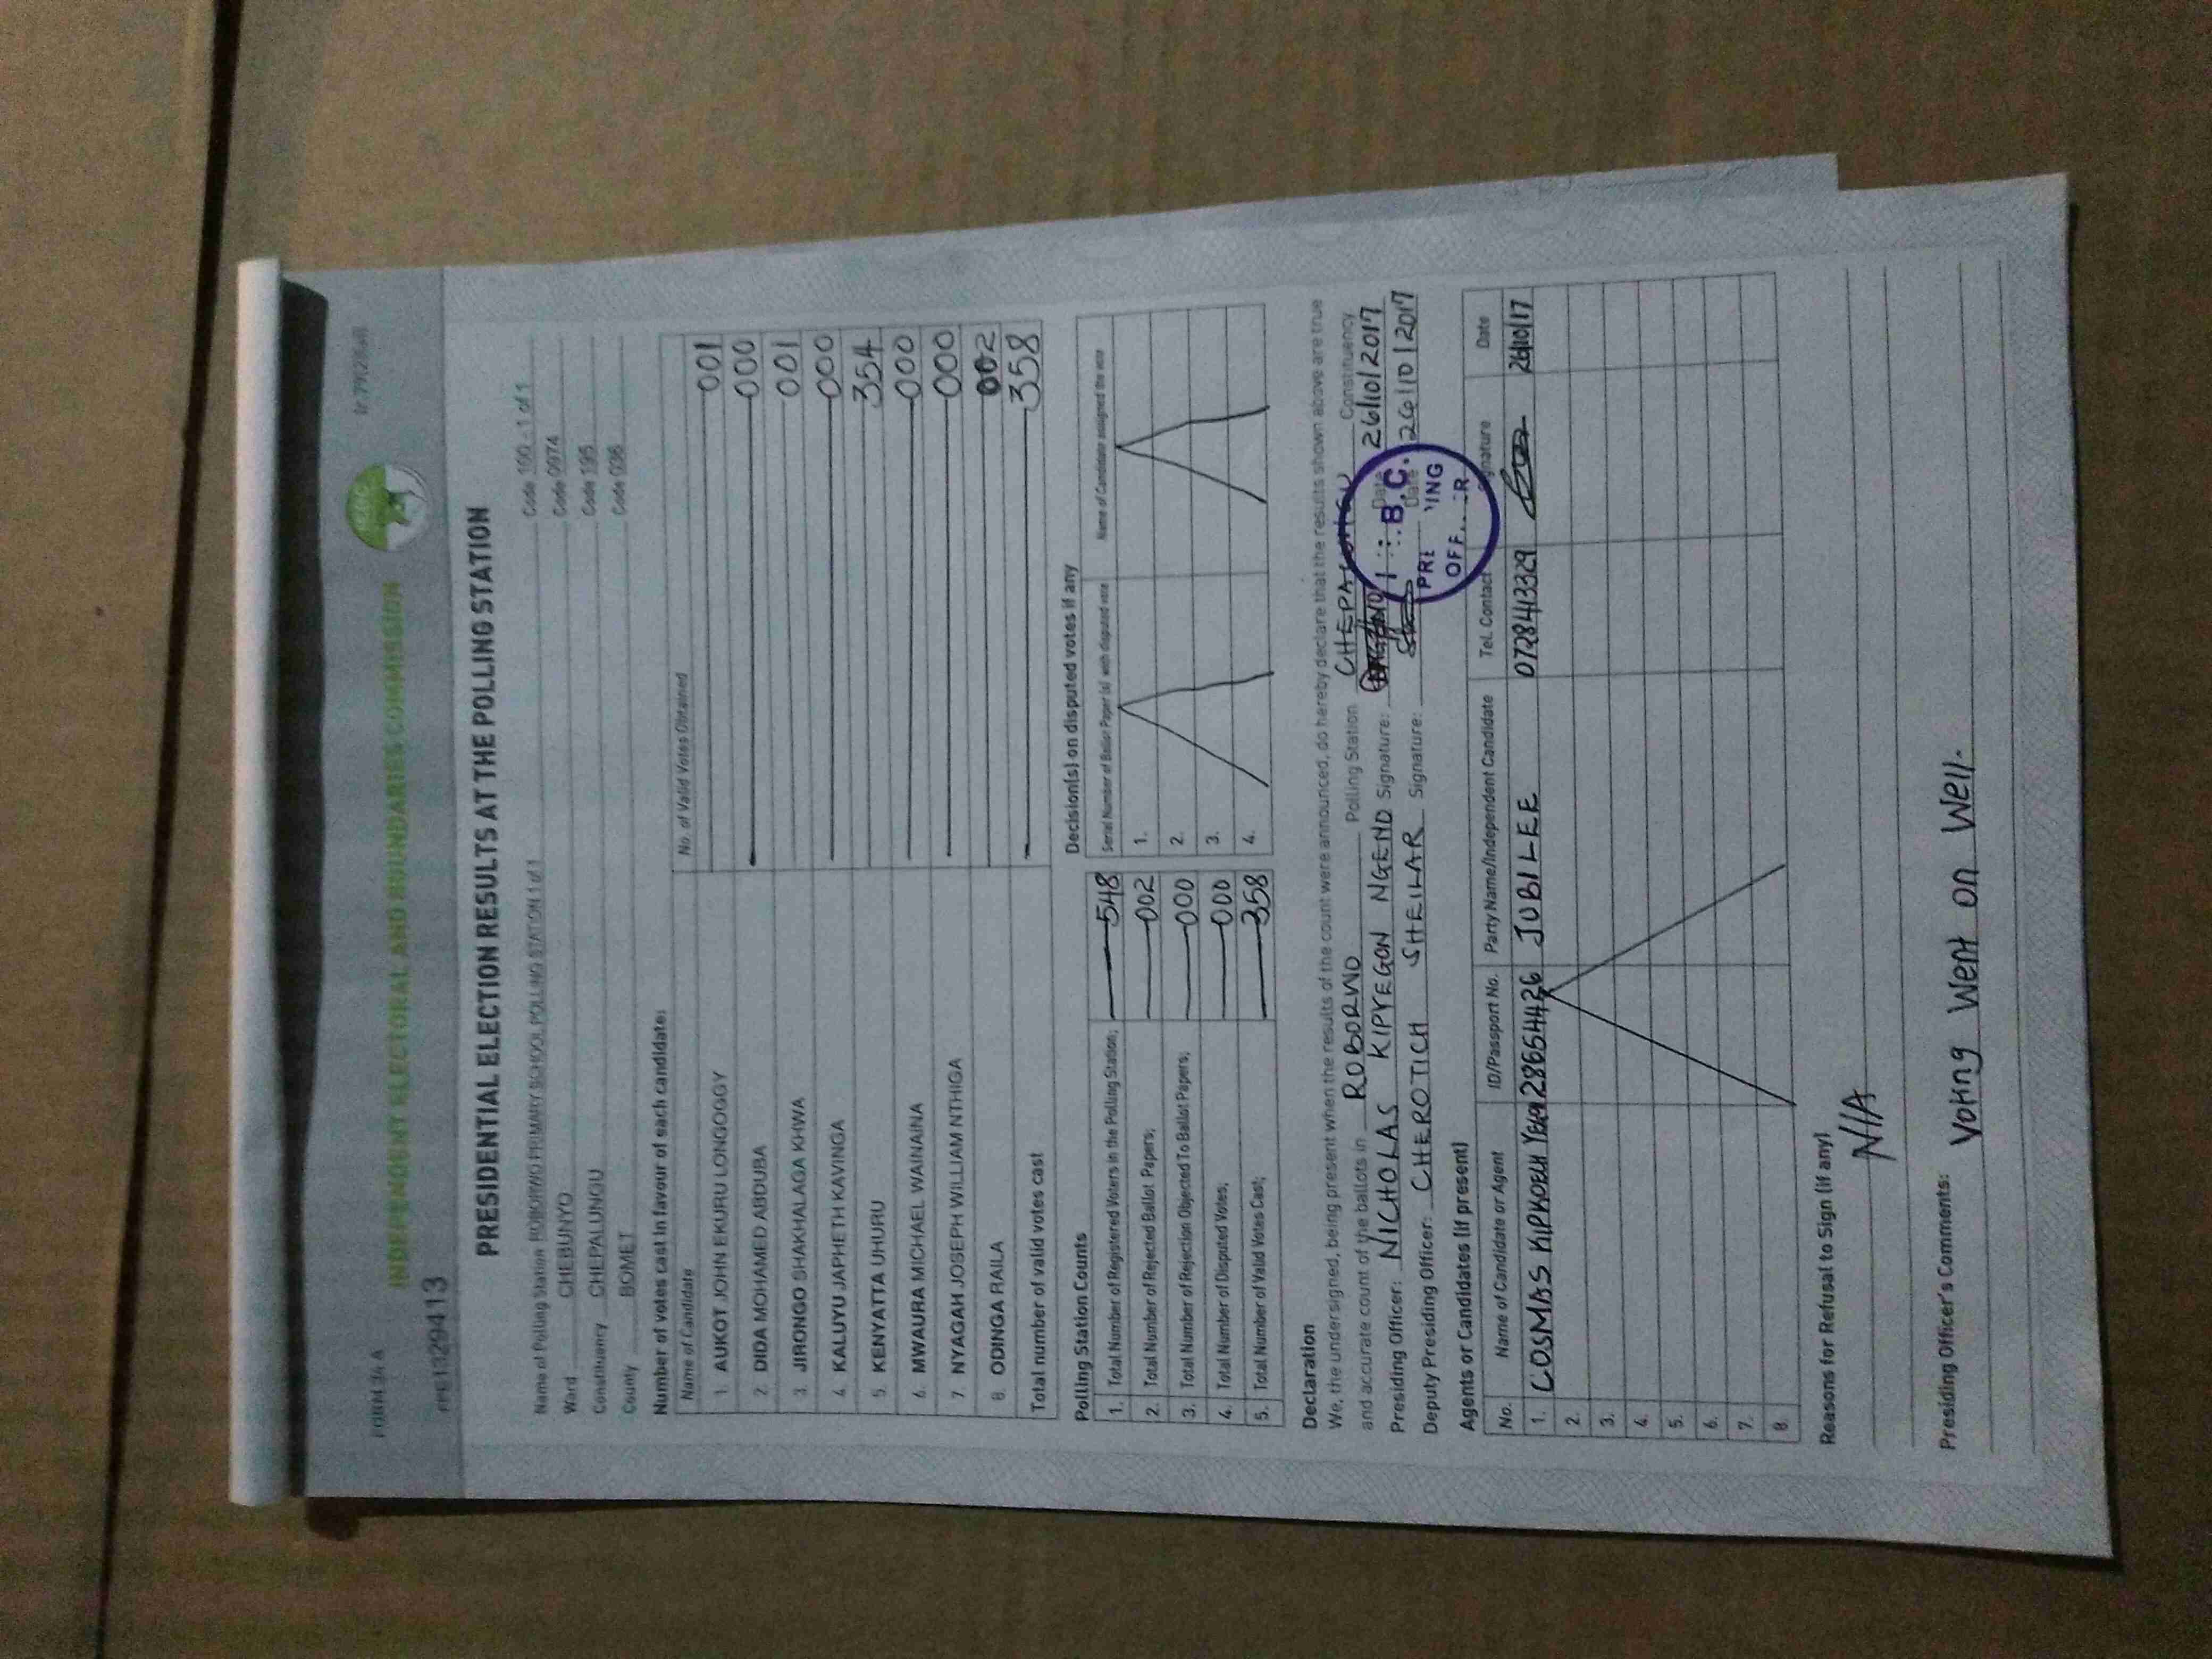 FORM 34 A
INDEPENDENT ELECTORAL AND BOUNDARIES COMMISSION
PRESIDENTIAL ELECTION RESULTS AT THE POLLING STATION
Name of Polling Station ROBORWO PRIMARY SCHOOL POLLING STATION 1 of 1 Code 100 - 1 of 1
Ward CHEBUNYO Code 0974
Constituency CHEPALUNGU Code 195
County BOMET Code 036
Number of votes cast in favour of each candidate:
Name of Candidate No. of Valid Votes Obtained
1. AUKOT JOHN EKURU LONGOGGY 001
2. DIDA MOHAMED ABDUBA 000
3. JIRONGO SHAKHALAGA KHWA 001
4. KALUYU JAPHETH KAVINGA 000
5. KENYATTA UHURU 354
6. MWAURA MICHAEL WAINAINA 000
7. NYAGAH JOSEPH WILLIAM NTHIGA 000
8. ODINGA RAILA 002
Total number of valid votes cast 358
Polling Station Counts
1. Total Number of Registered Voters in the Polling Station; 548
2. Total Number of Rejected Ballot Papers; 002
3. Total Number of Rejection Objected To Ballot Papers; 000
4. Total Number of Disputed Votes; 000
5. Total Number of Valid Votes Cast; 358
Decision(s) on disputed votes if any
Serial Number of Ballot Paper (s) with disputed vote Name of Candidate assigned the vote
1.
2.
3.
4.
Declaration
We, the undersigned, being present when the results of the count were announced, do hereby declare that the results shown above are true
and accurate count of the ballots in ROBORWO Polling Station CHEPALUNGU Constituency
Presiding Officer: NICHOLAS KIPYEGON NGENO Signature: Date 26/10/2017
Deputy Presiding Officer: CHEROTICH SHEILAR Signature: Date 26/10/2017
I.E.B.C.
Agents or Candidates (if present)
No. Name of Candidate or Agent ID/Passport No. Party Name/Independent Candidate Tel. Contact Signature Date
1. COSMAS KIPKOECH 28654426 JUBILEE 0728413329 26/10/17
2.
3.
4.
5.
6.
7.
8.
Reasons for Refusal to Sign (if any)
N/A
Presiding Officer's Comments:
Voting Went on Well.